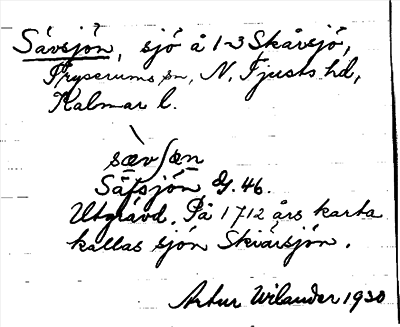 Sävsjön, sjö å 1-3 Skårsjö,
Tryserums sn, N. Tjusts hd,
Kalmar l.
sæv∫æn
Säfsjön Gg. 46.
Utgrävd. På 1712 års karta
kallas sjön Skiärsjön.
Artur Wilander 1930